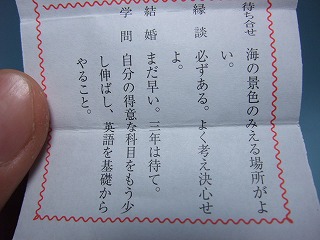 待ち合せ 海の景色のみえる場所がよ
い。
縁談 必ずある。よく考え決心せ
よ。
結婚 まだ早い。三年は待て。
学問 自分の得意な科目をもう少
し伸ばし、英語を基礎から
やること。